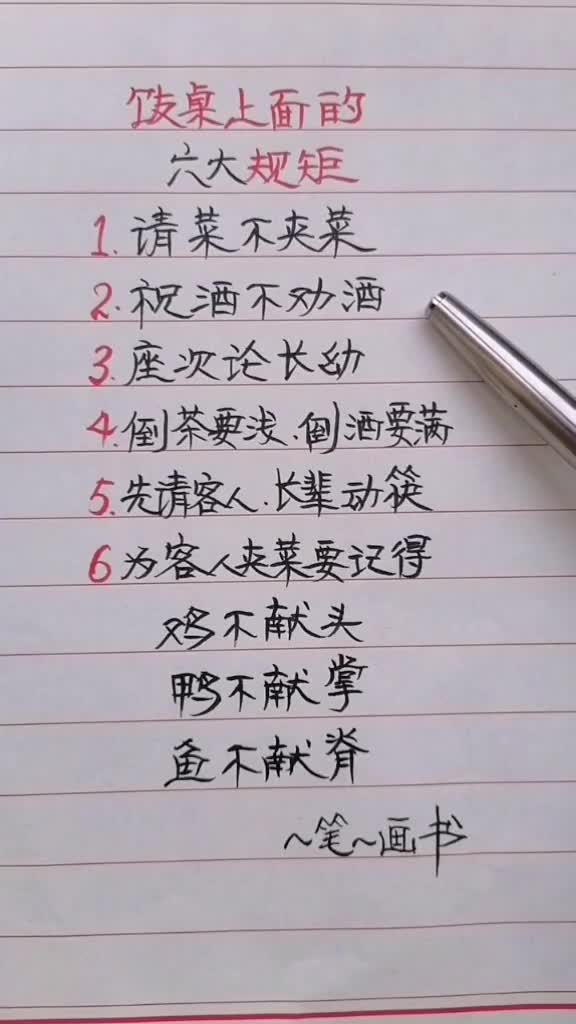 饭桌上面的
六大规矩
1.请菜不夹菜
2.祝酒不劝酒
3.座次论长幼
4.倒茶要浅.倒酒要满
5.先请客人.长辈动筷
6为客人夹菜要记得
鸡不献头
鸭不献掌
鱼不献脊
~笔~画书